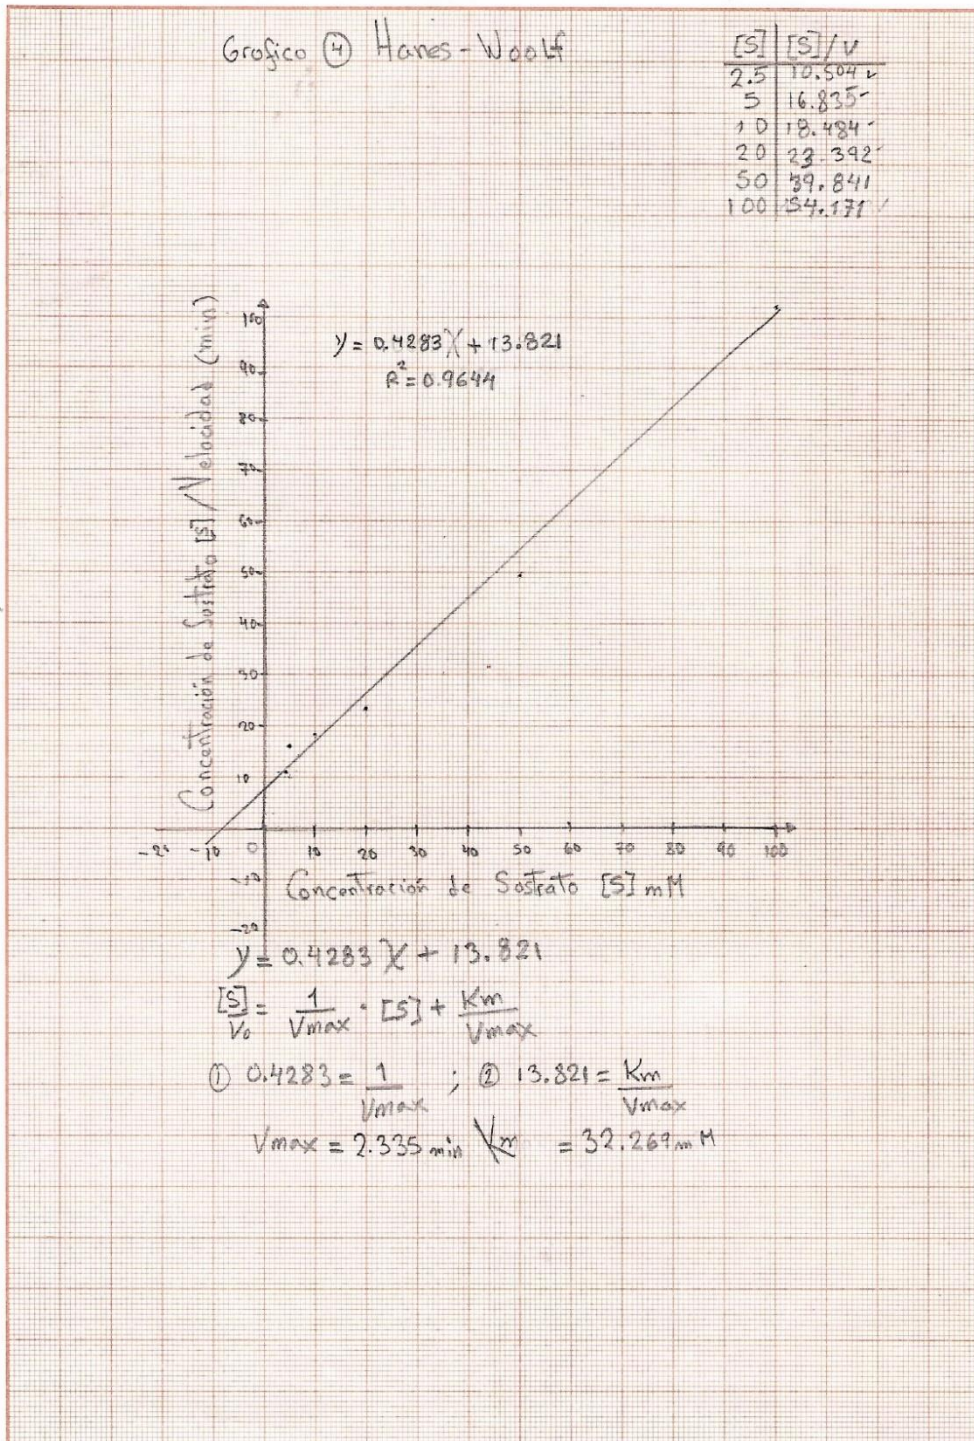 Grafico ④ Hanes-Woolf
[S] [S]/V
2.5 10.504
5 16.835
10 18.484
20 23.392
50 39.841
100 54.171
y = 0.4283X + 13.821
R² = 0.9644
Concentración de Sustrato [S] / Velocidad (min)
100
90
80
70
60
50
40
30
20
10
-20 -10 0 10 20 30 40 50 60 70 80 90 100
-10
Concentración de Sostrato [S] mM
-20
y = 0.4283X + 13.821
[S]/V₀ = 1/Vmax · [S] + Km/Vmax
① 0.4283 = 1/Vmax ; ② 13.821 = Km/Vmax
Vmax = 2.335 min Km = 32.269 mM